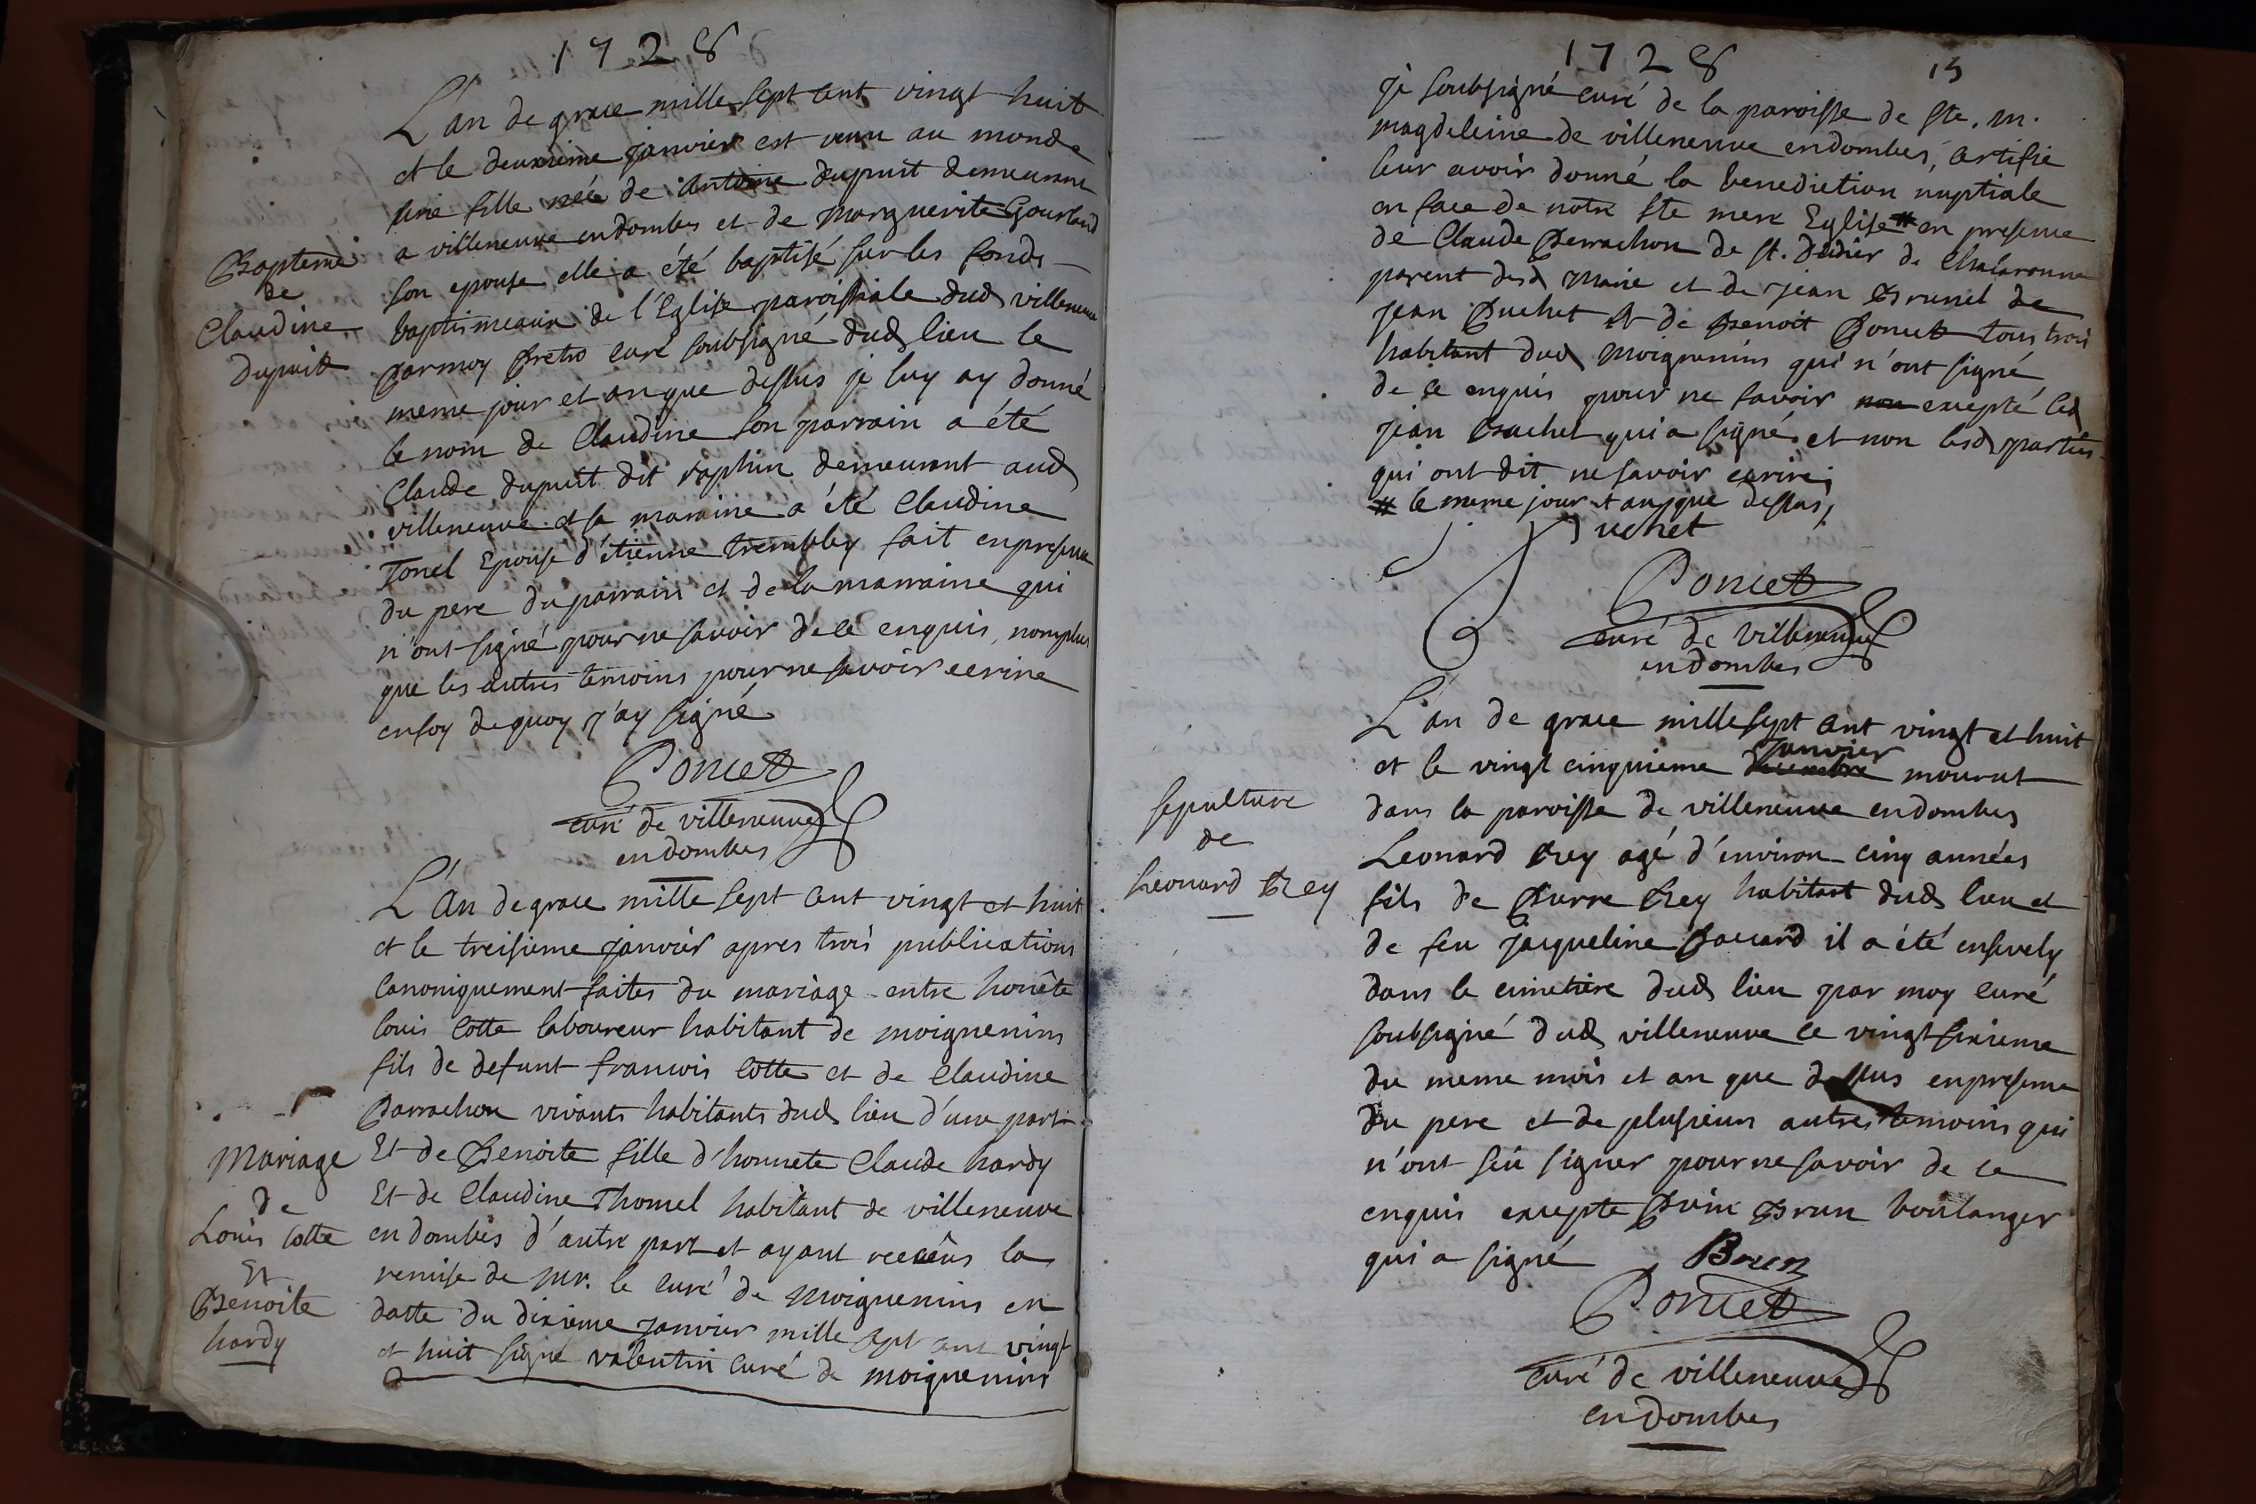 1728
L'an de grace mille sept cent vingt huit
et le deuxsieme janvier est venu au monde
une fille née de Antoine dupuit demeurant
a villeneuve en dombes et de Marguerite Gourland
son epouse elle a été baptisé sur les fonds
baptismeaux de l'Eglise paroissiale dud villeneuve
par moy Pretre curé soubsigné dud lieu le
meme jour et an que dessus je luy ay donné
le nom de Claudine son parrain a été
Claude dupuit dit raphin demeurant aud
villeneuve et sa maraine a été Claudine
Tonel Epouse d'étienne trembley fait en presence
du pere du parrain et de la marraine qui
n'ont signé pour ne savoir de ce enquis, nomplus
que les autres temoins pour ne savoir ecrire
en foy de quoy j'ay signé
Bapteme
de
Claudine
dupuit
Poncet
curé de villeneuve
en dombes
L'An de grace mille sept cent vingt et huit
et le treisieme janvier apres trois publications
Canoniquement faites du mariage entre honête
louis Cotte laboureur habitant de moignenins
fils de defunt francois Cotte et de Claudine
Parrachon vivants habitants dud lieu d'une part
Et de Benoite fille d'honnete Claude hardy
Et de Claudine Thomel habitant de villeneuve
en dombes d'autre part et ayant receus la
remise de Mr. le curé de Moignenins en
datte du dixieme janvier mille sept cent vingt
et huit signé valentin Curé de moignenins
Mariage
de
Louis Cotte
Et
Benoite
hardy
1728
15
je soubsigné curé de la paroisse de ste. m.
magdeleine de villeneuve en dombes, certifie
leur avoir donné la benediction nuptiale
en face de notre ste mere Eglise # en presence
de Claude Perrachon de st. Didier de Chalaronne
parent desd Marie et de jean Brunel de
jean Puchet et de Benoit Poncet tous trois
habitant dud Moignenins qui n'ont signé
de ce enquis pour ne savoir non excepté led
jean Puchet qui a signé et non lesd parties
qui ont dit ne savoir ecrire;
# le meme jour et an que dessus,
Puchet
Poncet
curé de villeneuve
en dombes
L'an de grace mille sept cent vingt et huit
Janvier
et le vingt cinquieme decembre mourut
dans la paroisse de villeneuve en dombes
Leonard Rey agé d'environ cinq années
fils de Pierre Rey habitant dud lieu et
de feu jacqueline Paccard il a été ensevely
dans le cimetiere dud lieu par moy curé
soubsigné dud villeneuve le vingt sixieme
du meme mois et an que dessus en presence
du pere et de plusieurs autres temoins qui
n'ont seu signer pour ne savoir de ce
enquis excepte brun boulanger
qui a signé Brun
sepulture
de
Leonard Rey
Poncet
curé de villeneuve
en dombes